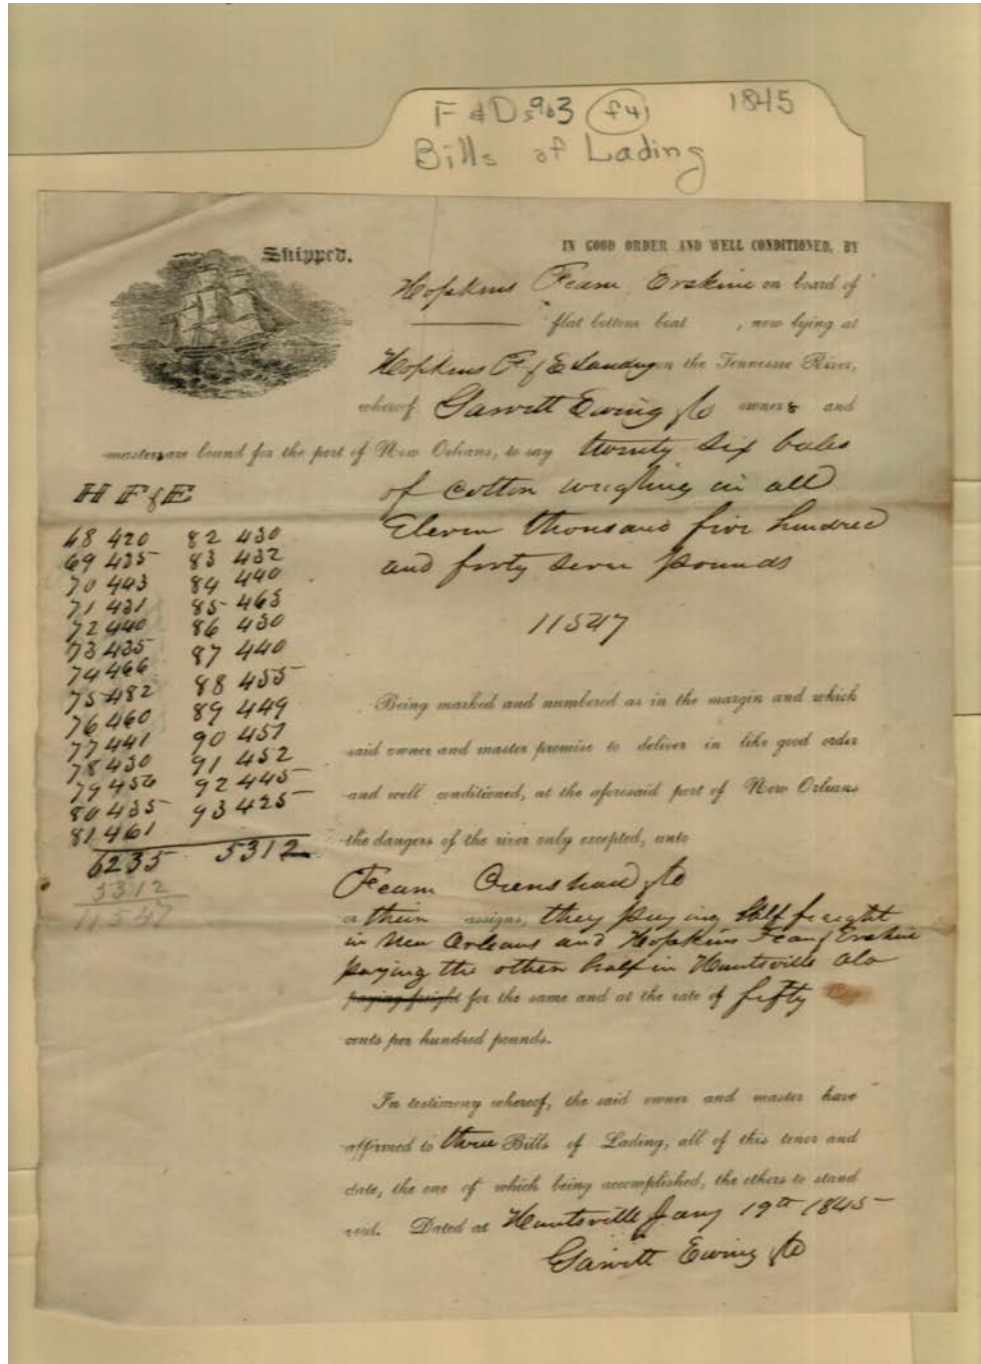 F & D 963 (f4) 1845
Bills of Lading
Shipped.
IN GOOD ORDER AND WELL CONDITIONED, BY
Hopkins Fearn Erskine on board of
flat bottom boat , now lying at
Hopkins F & E Landing on the Tennessee River,
whereof Garrett Ewing & Co owners and
masters are bound for the port of New Orleans, to say twenty six bales
H F & E
of cotton weighing in all
Eleven thousand five hundred
and forty seven pounds
11547
68 420 82 430
69 435 83 432
70 443 84 440
71 431 85 465
72 440 86 430
73 435 87 440
74 466 88 455
75 482 89 449
76 460 90 451
77 441 91 452
78 430 92 445
79 456 93 425
80 435
81 461
6235 5312
5312
11547
Being marked and numbered as in the margin and which
said owner and master promise to deliver in like good order
and well conditioned, at the aforesaid port of New Orleans
the dangers of the river only excepted, unto
Fearn Crenshaw & Co
or their assigns, they paying half freight
in New Orleans and Hopkins Fearn & Erskine
paying the other half in Huntsville Ala
paying freight for the same and at the rate of fifty
cents per hundred pounds.
In testimony whereof, the said owner and master have
affirmed to three Bills of Lading, all of this tenor and
date, the one of which being accomplished, the others to stand
void. Dated at Huntsville Jany 19th 1845
Garrett Ewing & Co